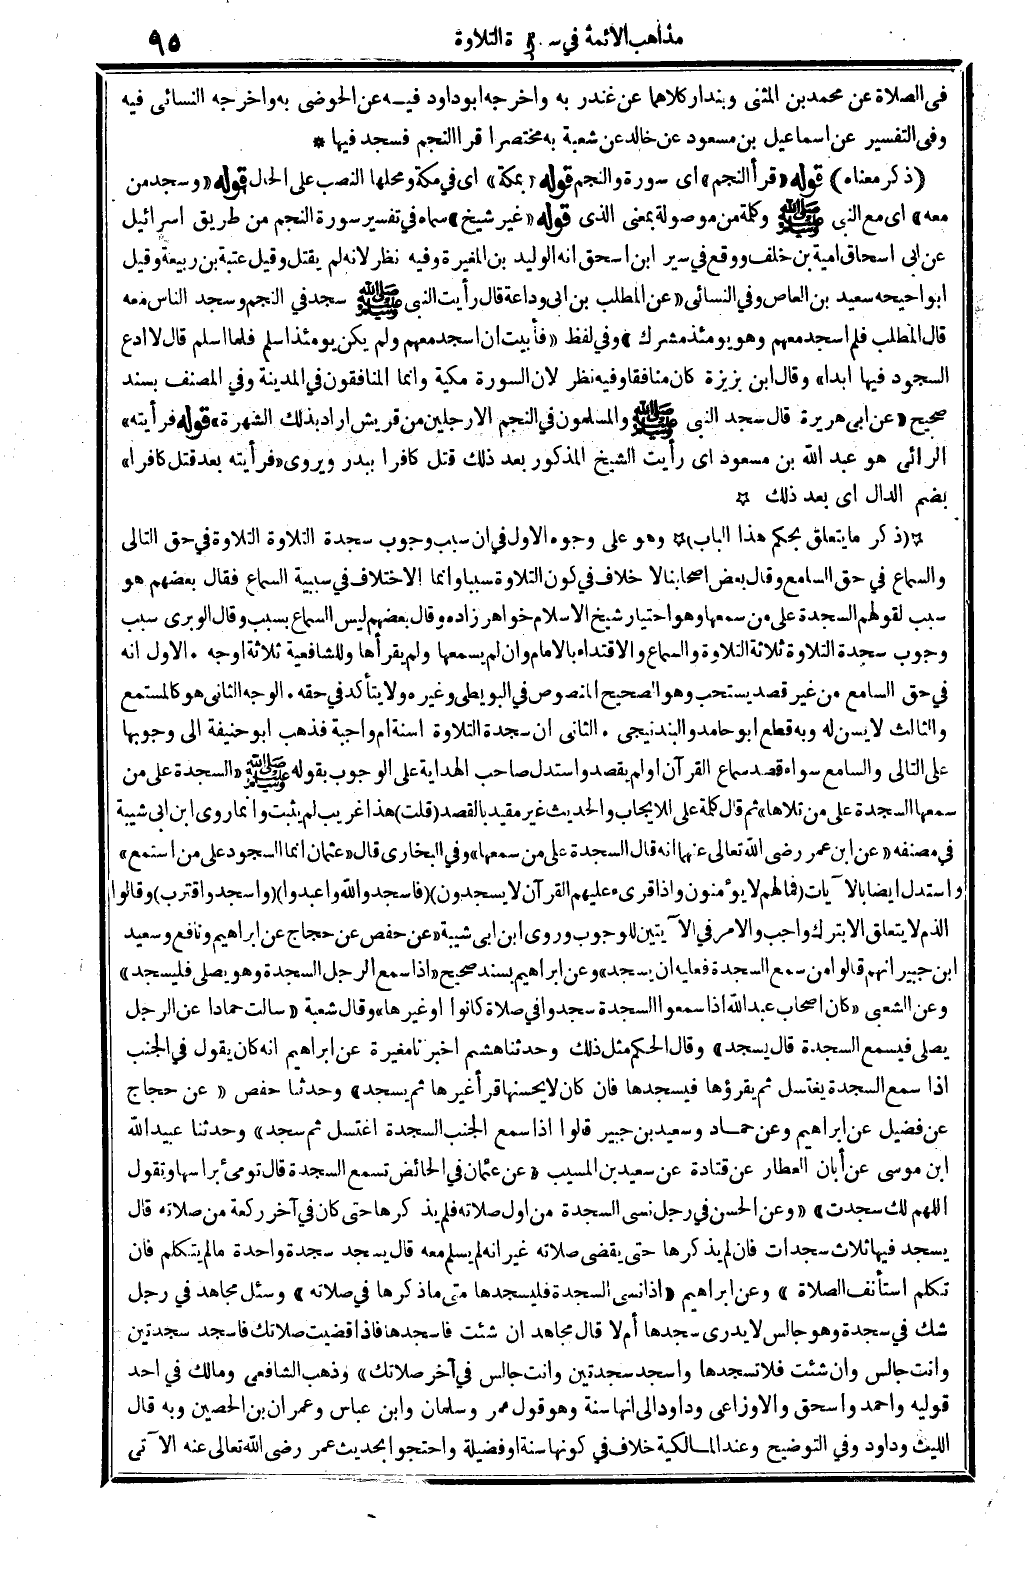 مذاهب الأئمة في سجدة التلاوة ٩٥
فى الصلاة عن محمد بن المثنى وبندار كلاهما عن غندر به واخرجه ابوداود فيه عن الحوضى به واخرجه النسائى فيه
وفى التفسير عن اسماعيل بن مسعود عن خالد عن شعبة به مختصرا قرا النجم فسجد فيها *
(ذكر معناه) قوله «قرأ النجم» اى سورة والنجم قوله «بمكة» اى في مكة ومحلها النصب على الحال قوله «وسجد من
معه» اى مع النبى ﷺ وكلمة من موصولة بمعنى الذى قوله «غير شيخ» سماه في تفسير سورة النجم من طريق اسرائيل
عن ابى اسحاق امية بن خلف ووقع في سير ابن اسحق انه الوليد بن المغيرة وفيه نظر لانه لم يقتل وقيل عتبة بن ربيعة وقيل
ابو احيحه سعيد بن العاص وفي النسائى «عن المطلب بن ابى وداعة قال رأيت النبى ﷺ سجد في النجم وسجد الناس معه
قال المطلب فلم اسجد معهم وهو يومئذ مشرك» وفي لفظ «فأبيت ان اسجد معهم ولم يكن يومئذ اسلم فلما اسلم قال لا ادع
السجود فيها ابدا» وقال ابن بزيزة كان منافقا وفيه نظر لان السورة مكية وانما المنافقون في المدينة وفي المصنف بسند
صحيح «عن ابى هريرة قال سجد النبى ﷺ والمسلمون في النجم الا رجلين من قريش اراد بذلك الشهرة» قوله «فرأيته»
الرائى هو عبد الله بن مسعود اى رأيت الشيخ المذكور بعد ذلك قتل كافرا ببدر ويروى «فرأيته بعد قتل كافرا»
بضم الدال اى بعد ذلك ☆
☆(ذكر ما يتعلق بحكم هذا الباب)☆ وهو على وجوه الاول في ان سبب وجوب سجدة التلاوة التلاوة في حق التالى
والسماع في حق السامع وقال بعض اصحابنا لا خلاف في كون التلاوة سببا وانما الاختلاف في سببية السماع فقال بعضهم هو
سبب لقولهم السجدة على من سمعها وهو اختيار شيخ الاسلام خواهر زاده وقال بعضهم ليس السماع بسبب وقال الوبرى سبب
وجوب سجدة التلاوة ثلاثة التلاوة والسماع والاقتداء بالامام وان لم يسمعها ولم يقرأها وللشافعية ثلاثة اوجه . الاول انه
في حق السامع من غير قصد يستحب وهو الصحيح المنصوص في البويطى وغيره ولا يتأكد في حقه . الوجه الثانى هو كالمستمع
والثالث لا يسن له وبه قطع ابو حامد والبندنيجى . الثانى ان سجدة التلاوة اسنة ام واجبة فذهب ابو حنيفة الى وجوبها
على التالى والسامع سواء قصد سماع القرآن او لم يقصد واستدل صاحب الهداية على الوجوب بقوله ﷺ «السجدة على من
سمعها السجدة على من تلاها» ثم قال كلمة على للايجاب والحديث غير مقيد بالقصد (قلت) هذا غريب لم يثبت وانما روى ابن ابى شيبة
في مصنفه «عن ابن عمر رضى الله تعالى عنهما انه قال السجدة على من سمعها» وفي البخارى قال «عثمان انما السجود على من استمع»
واستدل ايضا بالآيات (فما لهم لا يؤمنون واذا قرىء عليهم القرآن لا يسجدون) (فاسجدوا لله واعبدوا) (واسجد واقترب) وقالوا
الذم لا يتعلق الا بترك واجب والامر في الآيتين للوجوب وروى ابن ابى شيبة «عن حفص عن حجاج عن ابراهيم ونافع وسعيد
ابن جبير انهم قالوا من سمع السجدة فعليه ان يسجد» وعن ابراهيم بسند صحيح «اذا سمع الرجل السجدة وهو يصلى فليسجد»
وعن الشعبى «كان اصحاب عبد الله اذا سمعوا السجدة سجدوا في صلاة كانوا او غيرها» وقال شعبة «سالت حمادا عن الرجل
يصلى فيسمع السجدة قال يسجد» وقال الحكم مثل ذلك وحدثنا هشيم اخبرنا مغيرة عن ابراهيم انه كان يقول في الجنب
اذا سمع السجدة يغتسل ثم يقرؤها فيسجدها فان كان لا يحسنها قرأ غيرها ثم يسجد» وحدثنا حفص «عن حجاج
عن فضيل عن ابراهيم وعن حماد وسعيد بن جبير قالوا اذا سمع الجنب السجدة اغتسل ثم سجد» وحدثنا عبيد الله
ابن موسى عن أبان العطار عن قتادة عن سعيد بن المسيب «عن عثمان في الحائض تسمع السجدة قال تومئ برأسها وتقول
اللهم لك سجدت» «وعن الحسن في رجل نسى السجدة من اول صلاته فلم يذكرها حتى كان في آخر ركعة من صلاته قال
يسجد فيها ثلاث سجدات فان لم يذكرها حتى يقضى صلاته غير انه لم يسلم معه قال يسجد سجدة واحدة مالم يتكلم فان
تكلم استأنف الصلاة» وعن ابراهيم «اذا نسى السجدة فليسجدها متى ماذكرها في صلاته» وسئل مجاهد في رجل
شك في سجدة وهو جالس لا يدرى سجدها أم لا قال مجاهد ان شئت فاسجدها فاذا قضيت صلاتك فاسجد سجدتين
وانت جالس وان شئت فلا تسجدها واسجد سجدتين وانت جالس في آخر صلاتك» وذهب الشافعى ومالك في احد
قوليه واحمد واسحق والاوزاعى وداود الى انها سنة وهو قول عمر وسلمان وابن عباس وعمران بن الحصين وبه قال
الليث وداود وفي التوضيح وعند المالكية خلاف في كونها سنة او فضيلة واحتجوا بحديث عمر رضى الله تعالى عنه الآتى